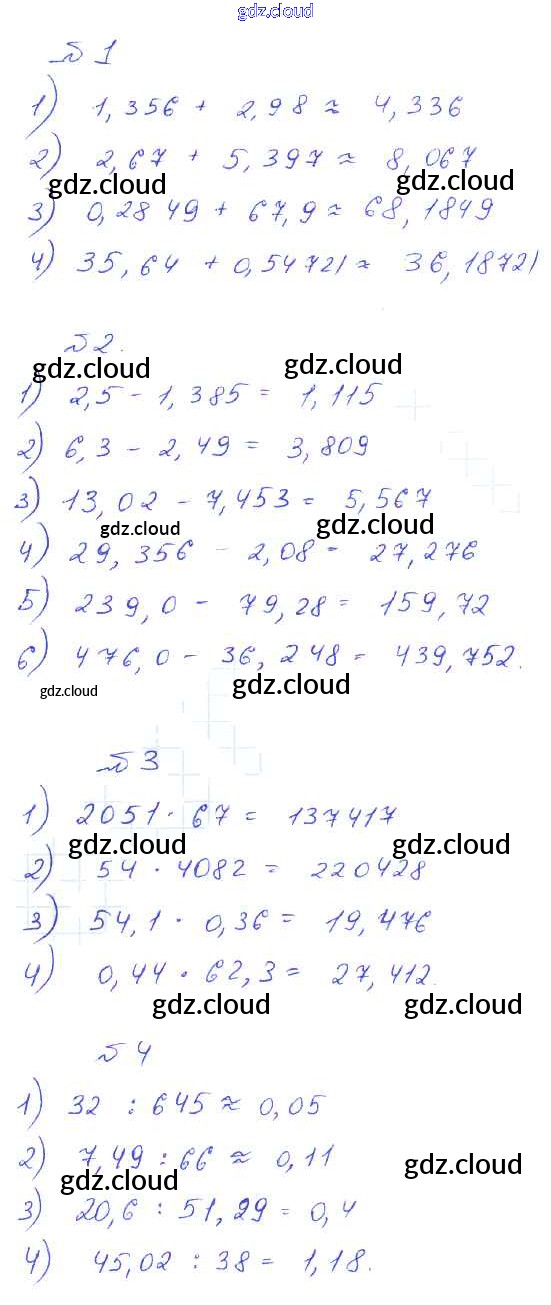 gdz.cloud
№ 1
1) 1,356 + 2,98 ≈ 4,336
2) 2,67 + 5,397 ≈ 8,067
gdz.cloud gdz.cloud
3) 0,2849 + 67,9 ≈ 68,1849
4) 35,64 + 0,54721 ≈ 36,18721
№ 2.
gdz.cloud gdz.cloud
1) 2,5 - 1,385 = 1,115
2) 6,3 - 2,49 = 3,809
3) 13,02 - 7,453 = 5,567
gdz.cloud gdz.cloud
4) 29,356 - 2,08 = 27,276
5) 239,0 - 79,28 = 159,72
6) 476,0 - 36,248 = 439,752.
gdz.cloud gdz.cloud
№ 3
1) 2051 · 67 = 137417
gdz.cloud gdz.cloud
2) 54 · 4082 = 220428
3) 54,1 · 0,36 = 19,476
4) 0,44 · 62,3 = 27,412.
gdz.cloud gdz.cloud
№ 4
1) 32 : 645 ≈ 0,05
2) 7,49 : 66 ≈ 0,11
gdz.cloud gdz.cloud
3) 20,6 : 51,29 = 0,4
4) 45,02 : 38 = 1,18.